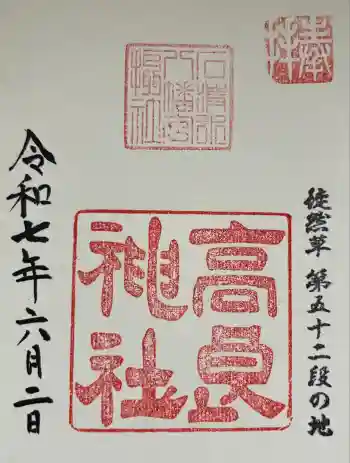 奉拝
石清水
八幡宮
摂社
徒然草 第五十二段の地
高良
神社
令和七年六月二日